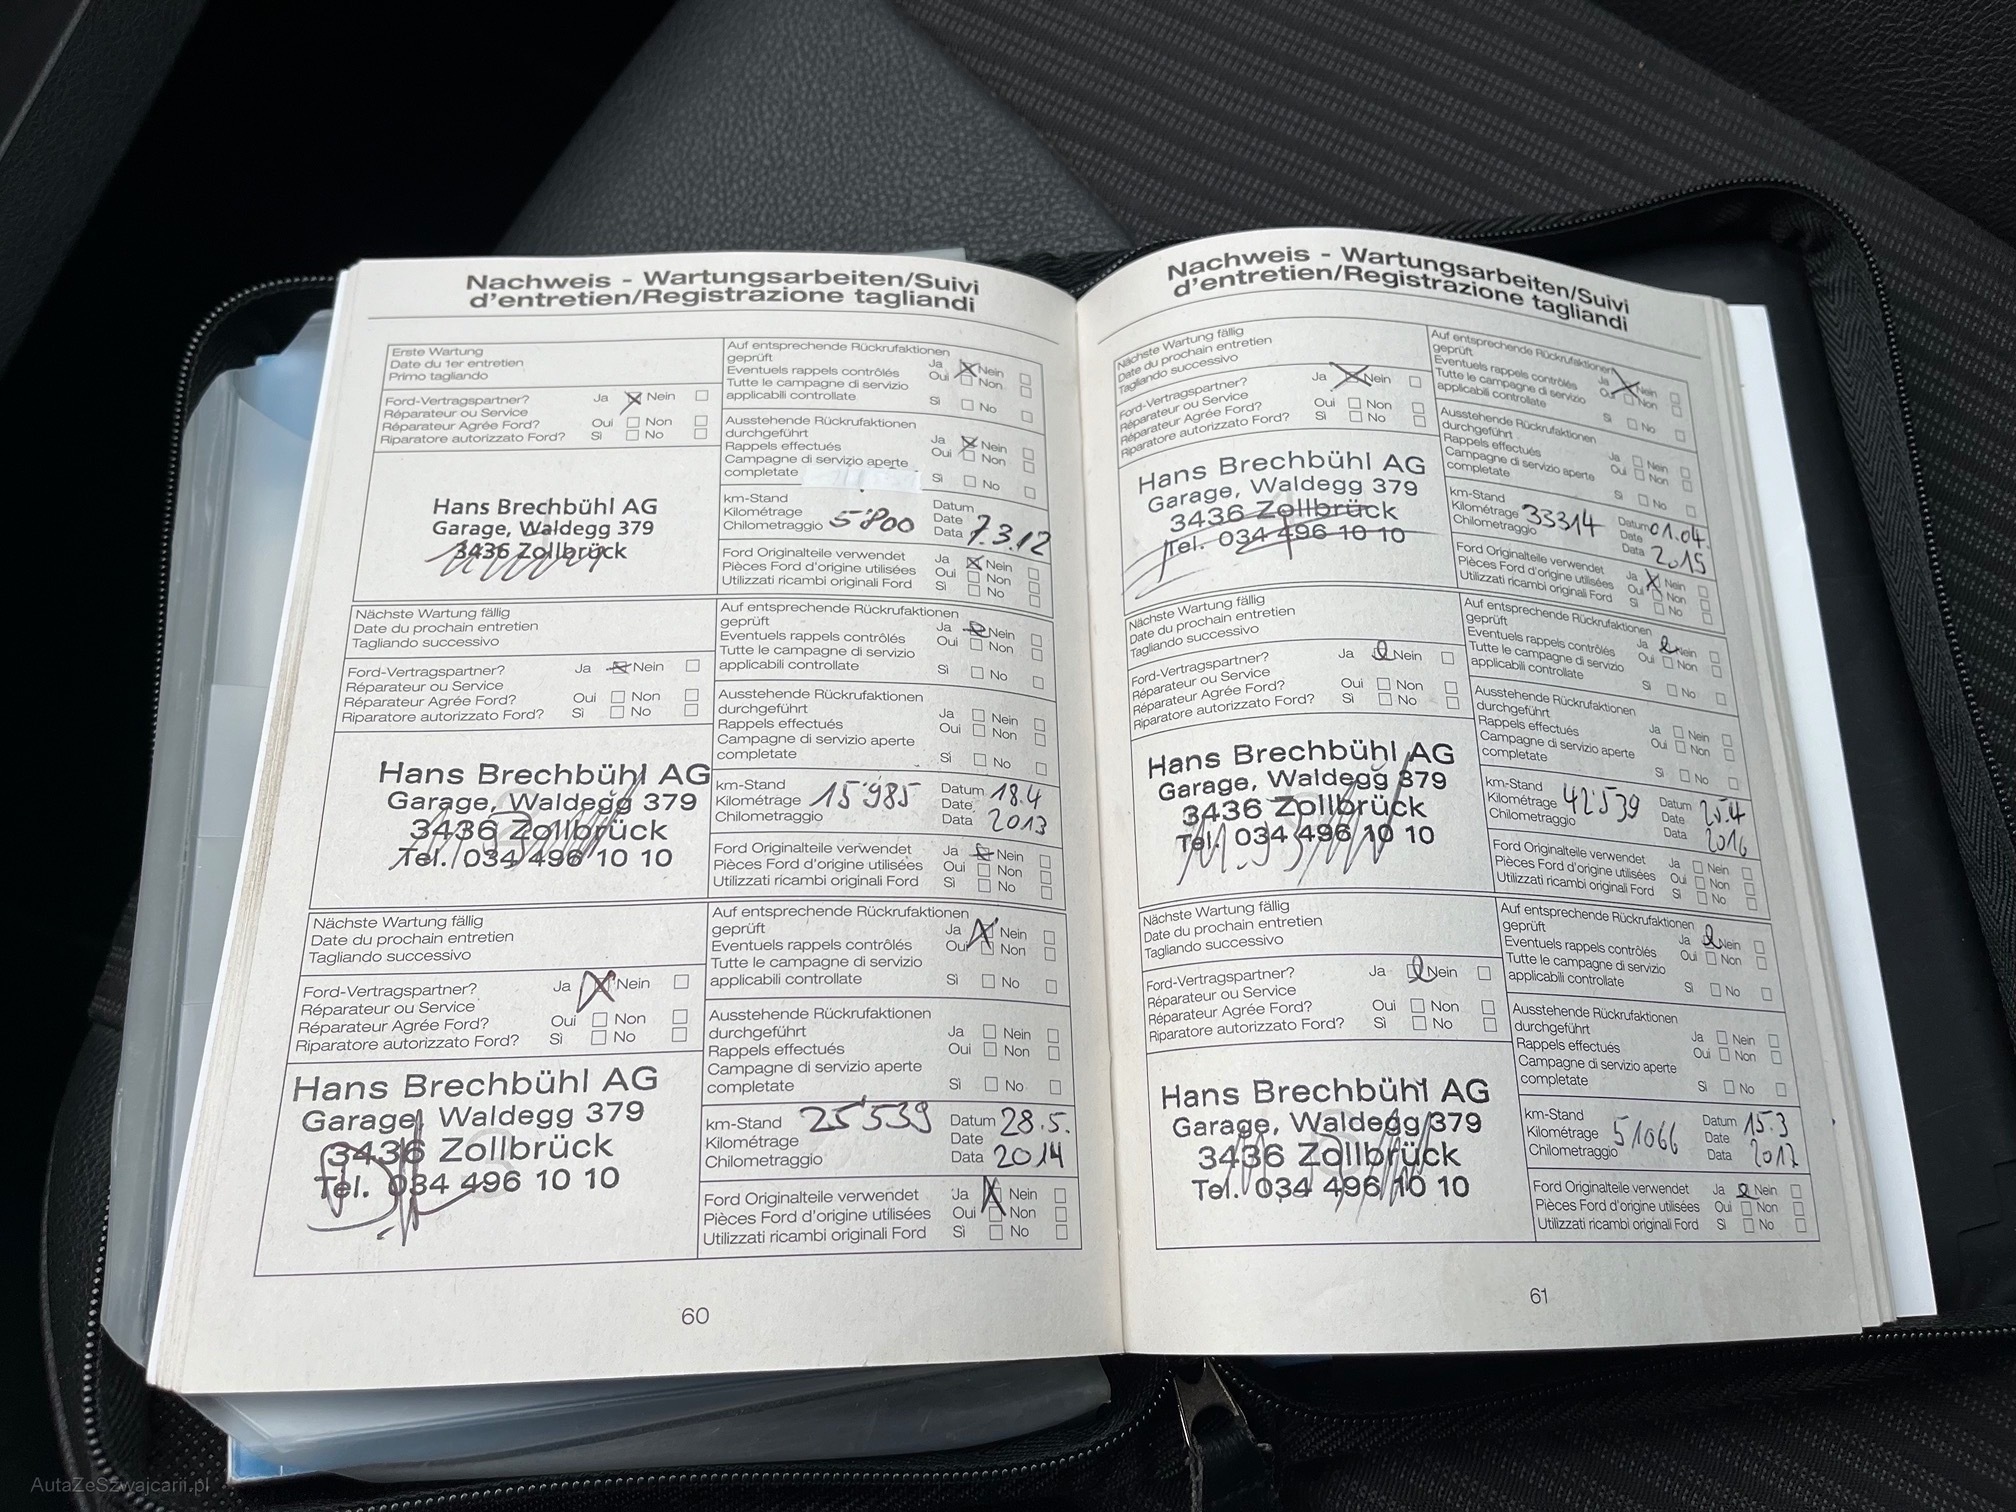 Nachweis - Wartungsarbeiten/Suivi
d'entretien/Registrazione tagliandi
Erste Wartung
Date du 1er entretien
Primo tagliando
Ford-Vertragspartner? Ja Nein
Réparateur ou Service
Réparateur Agrée Ford? Oui Non
Riparatore autorizzato Ford? Sì No
Hans Brechbühl AG
Garage, Waldegg 379
3436 Zollbrück
Auf entsprechende Rückrufaktionen
geprüft Ja Nein
Eventuels rappels contrôlés Oui Non
Tutte le campagne di servizio
applicabili controllate Sì No
Ausstehende Rückrufaktionen
durchgeführt Ja Nein
Rappels effectués Oui Non
Campagne di servizio aperte
completate Sì No
km-Stand Datum
Kilométrage Date
Chilometraggio 5'800 Data 7.3.12
Ford Originalteile verwendet Ja Nein
Pièces Ford d'origine utilisées Oui Non
Utilizzati ricambi originali Ford Sì No
Nächste Wartung fällig
Date du prochain entretien
Tagliando successivo
Ford-Vertragspartner? Ja Nein
Réparateur ou Service
Réparateur Agrée Ford? Oui Non
Riparatore autorizzato Ford? Sì No
Hans Brechbühl AG
Garage, Waldegg 379
3436 Zollbrück
Tel. 034 496 10 10
Auf entsprechende Rückrufaktionen
geprüft Ja Nein
Eventuels rappels contrôlés Oui Non
Tutte le campagne di servizio
applicabili controllate Sì No
Ausstehende Rückrufaktionen
durchgeführt Ja Nein
Rappels effectués Oui Non
Campagne di servizio aperte
completate Sì No
km-Stand Datum 18.4
Kilométrage 15'985 Date
Chilometraggio Data 2013
Ford Originalteile verwendet Ja Nein
Pièces Ford d'origine utilisées Oui Non
Utilizzati ricambi originali Ford Sì No
Nächste Wartung fällig
Date du prochain entretien
Tagliando successivo
Ford-Vertragspartner? Ja Nein
Réparateur ou Service
Réparateur Agrée Ford? Oui Non
Riparatore autorizzato Ford? Sì No
Hans Brechbühl AG
Garage, Waldegg 379
3436 Zollbrück
Tel. 034 496 10 10
Auf entsprechende Rückrufaktionen
geprüft Ja Nein
Eventuels rappels contrôlés Oui Non
Tutte le campagne di servizio
applicabili controllate Sì No
Ausstehende Rückrufaktionen
durchgeführt Ja Nein
Rappels effectués Oui Non
Campagne di servizio aperte
completate Sì No
km-Stand 25'539 Datum 28.5.
Kilométrage Date
Chilometraggio Data 2014
Ford Originalteile verwendet Ja Nein
Pièces Ford d'origine utilisées Oui Non
Utilizzati ricambi originali Ford Sì No
60
Nachweis - Wartungsarbeiten/Suivi
d'entretien/Registrazione tagliandi
Nächste Wartung fällig
Date du prochain entretien
Tagliando successivo
Ford-Vertragspartner? Ja Nein
Réparateur ou Service
Réparateur Agrée Ford? Oui Non
Riparatore autorizzato Ford? Sì No
Hans Brechbühl AG
Garage, Waldegg 379
3436 Zollbrück
Tel. 034 496 10 10
Auf entsprechende Rückrufaktionen
geprüft Ja Nein
Eventuels rappels contrôlés Oui Non
Tutte le campagne di servizio
applicabili controllate Sì No
Ausstehende Rückrufaktionen
durchgeführt Ja Nein
Rappels effectués Oui Non
Campagne di servizio aperte
completate Sì No
km-Stand Datum 01.04.
Kilométrage 33314 Date
Chilometraggio Data 2015
Ford Originalteile verwendet Ja Nein
Pièces Ford d'origine utilisées Oui Non
Utilizzati ricambi originali Ford Sì No
Nächste Wartung fällig
Date du prochain entretien
Tagliando successivo
Ford-Vertragspartner? Ja Nein
Réparateur ou Service
Réparateur Agrée Ford? Oui Non
Riparatore autorizzato Ford? Sì No
Hans Brechbühl AG
Garage, Waldegg 379
3436 Zollbrück
Tel. 034 496 10 10
Auf entsprechende Rückrufaktionen
geprüft Ja Nein
Eventuels rappels contrôlés Oui Non
Tutte le campagne di servizio
applicabili controllate Sì No
Ausstehende Rückrufaktionen
durchgeführt Ja Nein
Rappels effectués Oui Non
Campagne di servizio aperte
completate Sì No
km-Stand Datum 25.4
Kilométrage 42'539 Date
Chilometraggio Data 2016
Ford Originalteile verwendet Ja Nein
Pièces Ford d'origine utilisées Oui Non
Utilizzati ricambi originali Ford Sì No
Nächste Wartung fällig
Date du prochain entretien
Tagliando successivo
Ford-Vertragspartner? Ja Nein
Réparateur ou Service
Réparateur Agrée Ford? Oui Non
Riparatore autorizzato Ford? Sì No
Hans Brechbühl AG
Garage, Waldegg 379
3436 Zollbrück
Tel. 034 496 10 10
Auf entsprechende Rückrufaktionen
geprüft Ja Nein
Eventuels rappels contrôlés Oui Non
Tutte le campagne di servizio
applicabili controllate Sì No
Ausstehende Rückrufaktionen
durchgeführt Ja Nein
Rappels effectués Oui Non
Campagne di servizio aperte
completate Sì No
km-Stand Datum 15.3
Kilométrage 51066 Date
Chilometraggio Data 2017
Ford Originalteile verwendet Ja Nein
Pièces Ford d'origine utilisées Oui Non
Utilizzati ricambi originali Ford Sì No
61
AutaZeSzwajcarii.pl